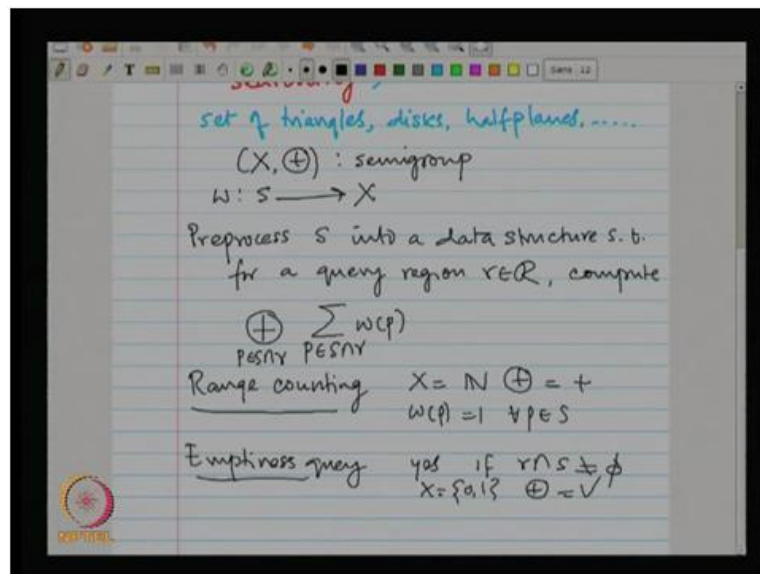 T Sans 12
set of triangles, disks, halfplanes, .....
(X, ⊕) : semigroup
w: S ⟶ X
Preprocess S into a data structure s.t.
for a query region r∈R, compute
⊕ ∑ w(p)
p∈S∩r p∈S∩r
Range counting X = N ⊕ = +
w(p) = 1 ∀p∈S
Emptiness query yes if r∩S ≠ φ
X = {0,1} ⊕ = ∨
NPTEL